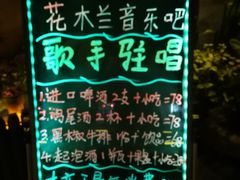 花木兰音乐吧
歌手驻唱
1.进口啤酒2支+小吃=78
2.鸡尾酒2杯+小吃=78
3.黑椒牛排1份+饮品=68
4.起泡酒1瓶+果盘+小吃